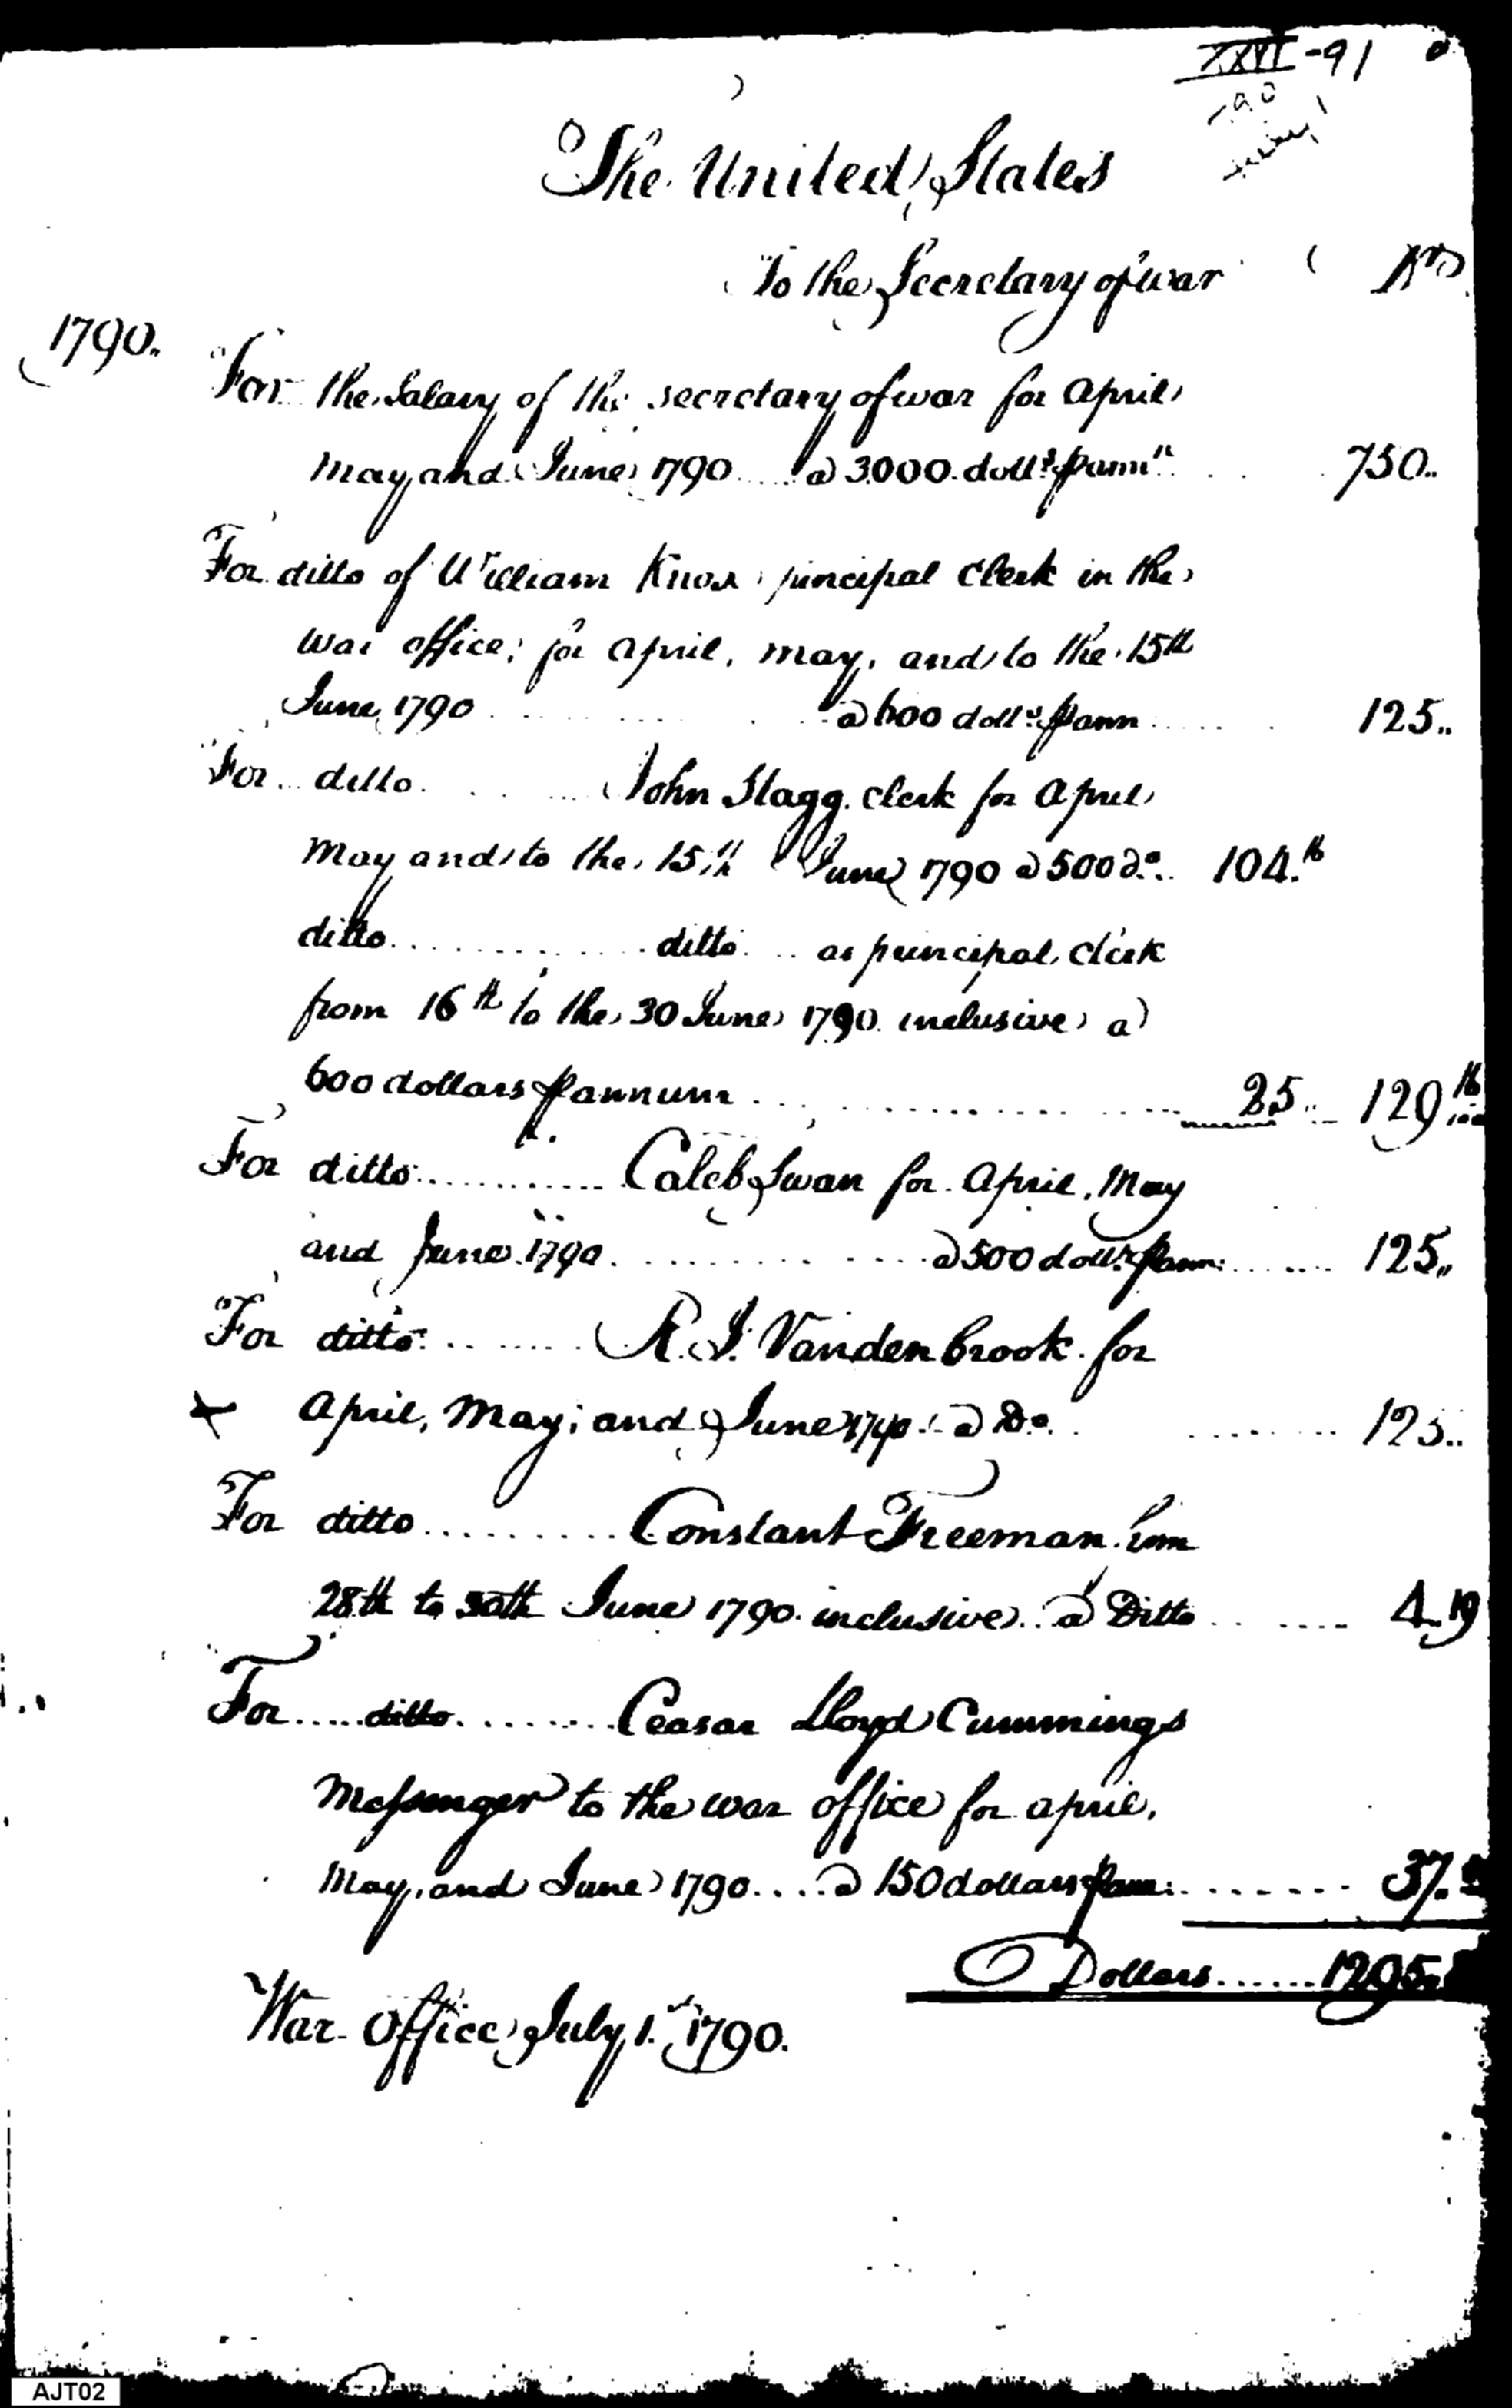 XXVI-91
The United States
To the Secretary of war Drs
1790.
For the Salary of the secretary of war for april
May and June 1790 a 3000 dolls. p ann. 750..
For ditto of William Knox principal Clerk in the
war office; for april, may, and to the 15th
June 1790 a 600 dolls. p ann 125..
For ditto John Stagg. clerk for april
May and to the 15th June 1790 a 500 do. 104.16
ditto ditto as principal clerk
from 16th to the 30 June 1790 inclusive a
600 dollars p annum 25.. 129.16
For ditto Caleb Swan for april, May
and June 1790 a 500 dolls. p ann: 125,,
For ditto R. J. Vanden brook for
x april, May; and June 1790 a Do. 125..
For ditto Constant Freeman from
28th to 30th June 1790 inclusive a Ditto 4.19
For ditto Ceasar Lloyd Cummings
Messenger to the war office for april,
May, and June 1790 a 150 dollars p ann: 37.
Dollars 1295.
War office July 1st 1790.
AJT02